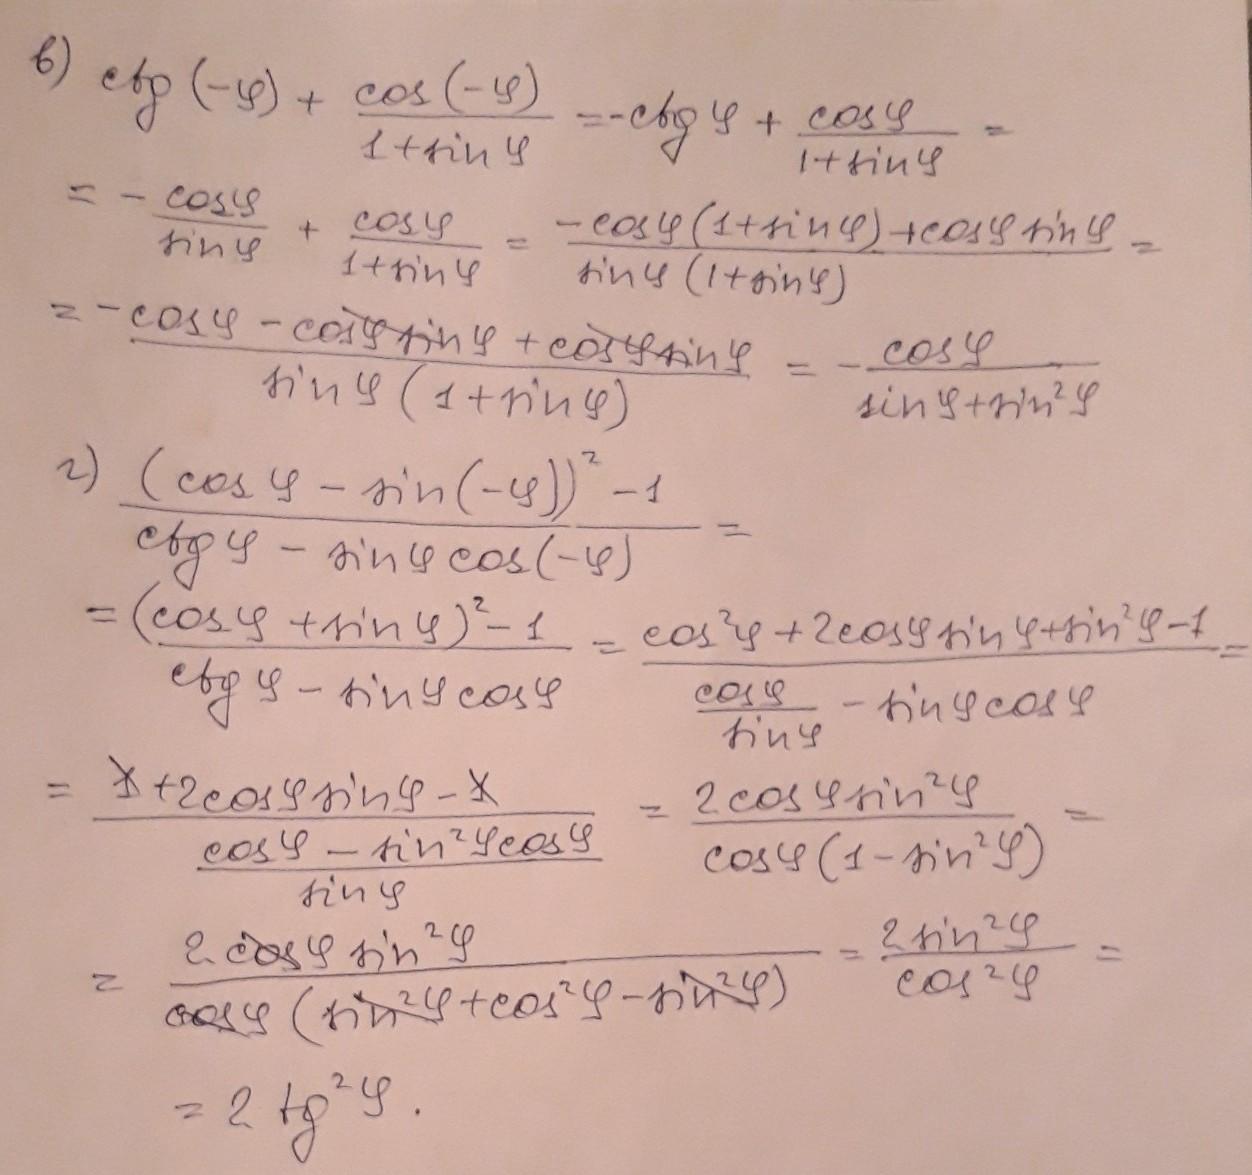 в) ctg (-φ) + cos (-φ) / 1+sin φ = -ctg φ + cos φ / 1+sin φ =
= - cos φ / sin φ + cos φ / 1+sin φ = -cos φ (1+sin φ) + cos φ sin φ / sin φ (1+sin φ) =
= -cos φ - cos φ sin φ + cos φ sin φ / sin φ (1+sin φ) = - cos φ / sin φ + sin² φ
г) (cos φ - sin (-φ))² - 1 / ctg φ - sin φ cos (-φ) =
= (cos φ + sin φ)² - 1 / ctg φ - sin φ cos φ = cos² φ + 2 cos φ sin φ + sin² φ - 1 / cos φ / sin φ - sin φ cos φ =
= 1 + 2 cos φ sin φ - 1 / cos φ - sin² φ cos φ / sin φ = 2 cos φ sin² φ / cos φ (1 - sin² φ) =
= 2 cos φ sin² φ / cos φ (sin² φ + cos² φ - sin² φ) = 2 sin² φ / cos² φ =
= 2 tg² φ.